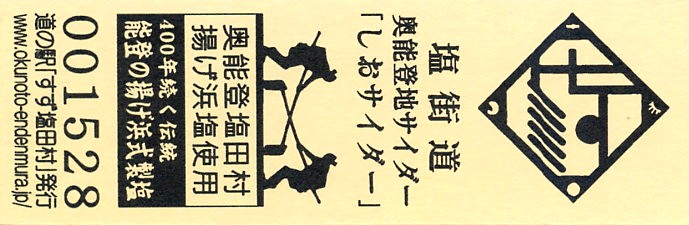 塩街道
奥能登地サイダー
「しおサイダー」
奥能登塩田村
揚げ浜塩使用
400年続く伝統
能登の揚げ浜式製塩
001528
道の駅「すず塩田村」発行
www.okunoto-endenmura.jp/